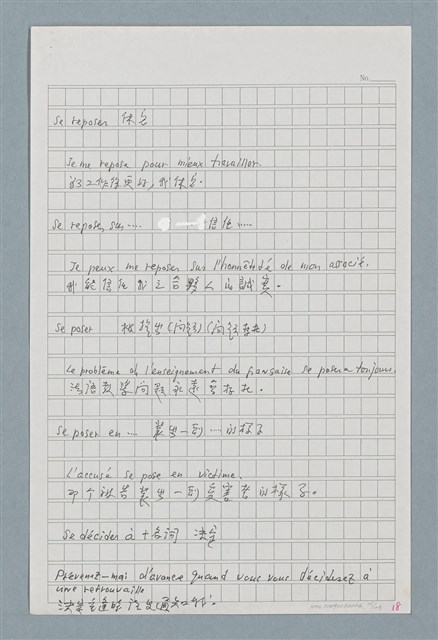 No.
se reposer 休息
Je me repose pour mieux travailler.
为了工作得更好，我休息。
se reposer sur…… 信任……
Je peux me reposer sur l'honnêteté de mon associé.
我能信任我之合夥人的誠實。
se poser 被提出(问题) (问题存在)
Le problème de l'enseignement du française se posera toujours.
法语教学问题永遠會存在。
se poser en …… 装出一副……的样子
L'accusé se pose en victime.
那个被告装出一副受害者的樣子。
se décider à + 名詞 决定
Prévenez-moi d'avance quand vous vous déciderez à
une retrouvaille
决定重逢时
18